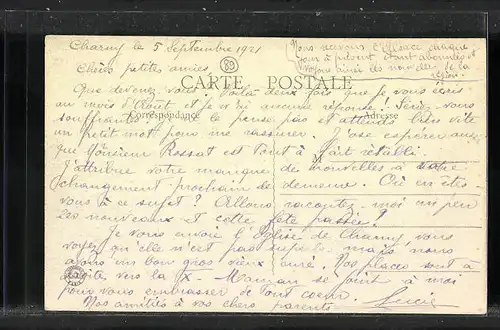 Charny le 5 Septembre 1921
80
Nous recevons l'Alsace chaque
jour à présent étant abonnées et
voyons ainsi les nouvelles de la
région.
Chères petites amies,
CARTE POSTALE
Que devenez-vous? Voilà deux fois que je vous écris
au mois d'Août et je n'ai aucune réponse! Seriez-vous
souffrantes je pense pas et attends bien vite
Correspondance
Adresse
un petit mot pour me rassurer. J'ose espérer aussi
que Monsieur Rossat est tout à fait rétabli
J'attribue votre manque de nouvelles à votre
changement prochain de demeure. Où en êtes-
vous à ce sujet? Allons racontez-moi un peu
les nouveaux et cette fête passée?
Je vous envoie l'Eglise de Charny, vous
voyez qu'elle n'est pas superbe mais nous
avons un bon gros vieux curé. Nos places sont à
droite vers la X - Maman se joint à moi
pour vous embrasser de tout coeur.
Nos amitiés à vos chers parents. Lucie